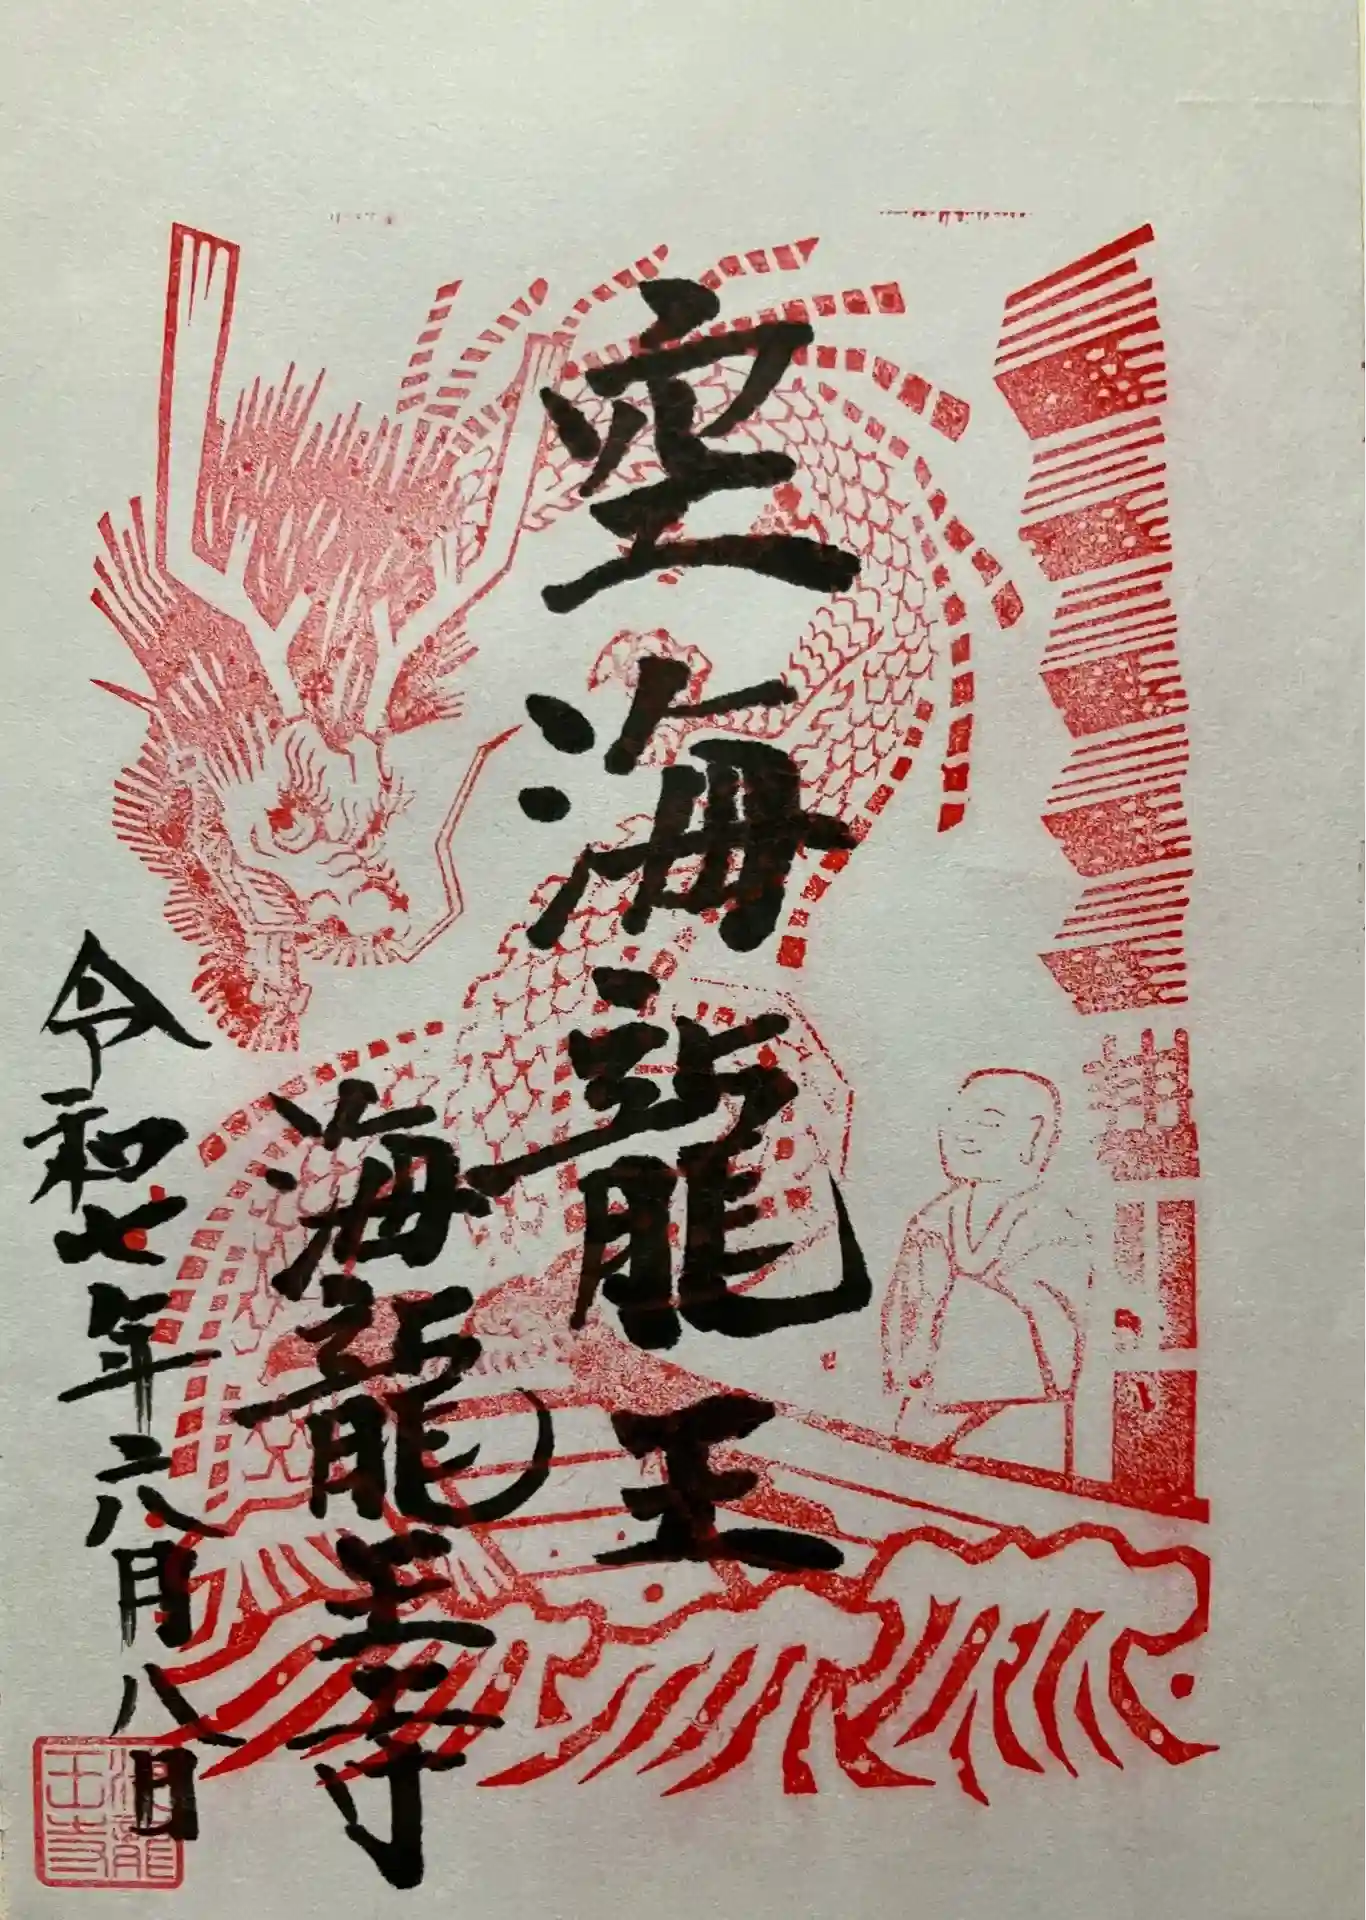 空海龍王
海龍王寺
令和七年六月八日
海龍
王寺